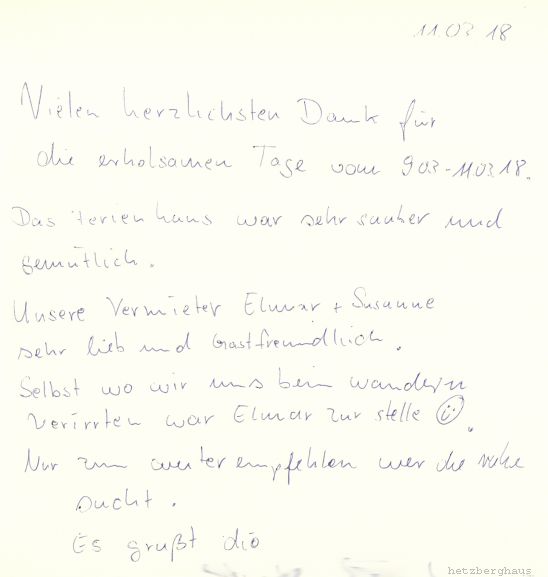 11 03 18
Vielen herzlichsten Dank für
die erholsamen Tage vom 9 03 - 11.03 18.
Das Ferienhaus war sehr sauber und
gemütlich.
Unsere Vermieter Elmar + Susanne
sehr lieb und Gastfreundlich.
Selbst wo wir uns beim wandern
verirrten war Elmar zur stelle ☺.
Nur zum weiterempfehlen wer die ruhe
sucht.
Es grüßt die
hetzberghaus